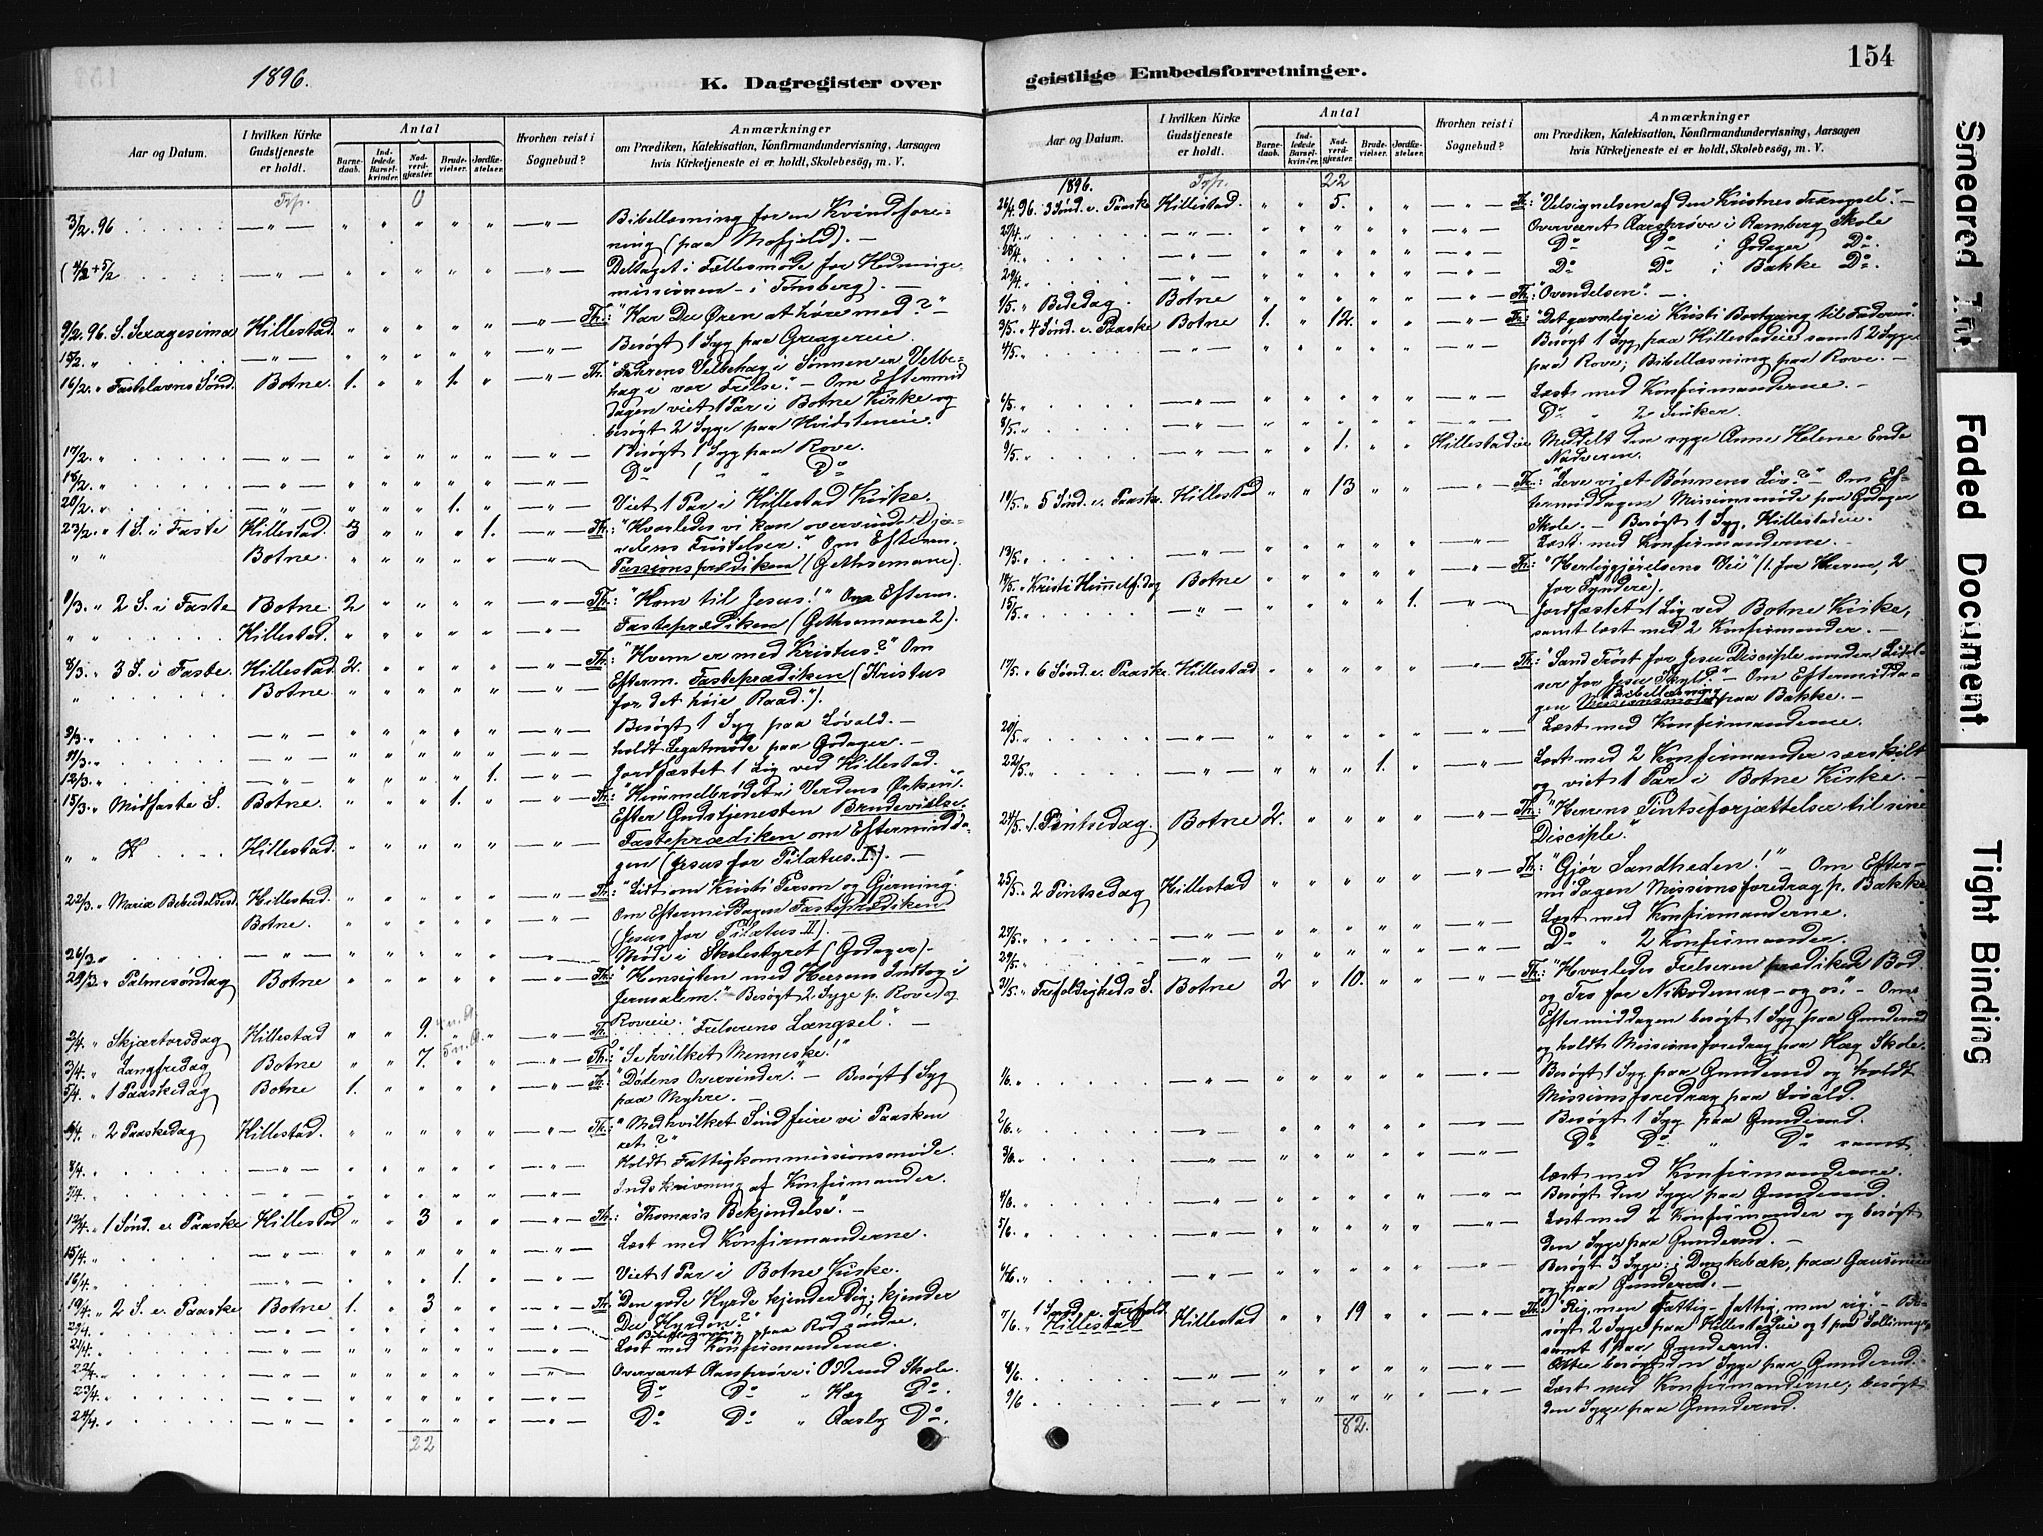 1896.
K. Dagregister over
Aar og Datum.
I hvilken Kirke Gudstjeneste er holdt.
Antal
Barnedaab.
Indledede Barselkvinder.
Nadverdgjæster.
Brudevielser.
Jordfæstelser.
Hvorhen reist i Sognebud?
Anmærkninger
om Prædiken, Katekisation, Konfirmandundervisning, Aarsagen
hvis Kirketjeneste ei er holdt, Skolebesøg, m. V.
Trp. 0
3/2. 96 Bibellæsning for en Kvindefore-
ning (paa Mofjeld). —
(4/2 + 5/2 Deltaget i Fællesmøde for Hedninge-
missionen - i Tønsberg). —
9/2. 96. S. Sexagesima Hillestad. Th.: "Har Du Øren at høre med?" —
15/2. " Besøgt 1 Syg paa Greagereie.
16/2. " Fastelavns Sønd. Botne. 1. 1. Th. "Faderens Velbehag i Sønnen er Velbe-
hag i vor Frelse." — Om Eftermid
dagen viet 1 Par i Botne Kirke og
besøgt 2 Syge paa Hvidsteneie.
17/2. " Besøgt 1 Syg paa Rove.
18/2. " Do 1 " " Do
20/2. " 1. Viet 1 Par i Hillestad Kirke.
23/2. " 1 S. i Faste Hillestad. 3 1. Th.: "Hvorledes vi kan overvinde Djæ-
velens Fristelser." Om Efterm.
" " Botne. Passionsprædiken (Gethsemane).
1/3. " 2 S. i Faste Botne. 2 Th.: "Kom til Jesus!" Om Efterm.
" " Hillestad. Fasteprædiken (Gethsemane 2).
8/3. " 3 S. i Faste. Hillestad. 2. Th.: "Hvem er med Kristus?" Om
" Botne. Efterm. Fasteprædiken (Kristus
for det høie Raad.").
9/3. " Besøgt 1 Syg paa Løvald. —
11/3. " holdt Legatmøde paa Godager. —
12/3. " 1. Jordfæstet 1 Lig ved Hillestad.
15/3. " Midfaste S. Botne. 1. Th.: "Himmelbrødet i Verdens Ørken".
Efter Gudstjenesten Brudevielse.
" " Hillestad. Fasteprædiken om Eftermidda-
gen (Jesus for Pilatus. I). —
22/3. " Mariæ Bebudelsesd. Hillestad. Th.: "Lidt om Kristi Person og Gjerning."
Botne. Om Eftermiddagen Fasteprædiken
(Jesus for Pilatus II). —
26/3 " Møde i Skolestyret (Godager). —
29/3 " Palmesøndag Botne Th: "Hensigten med Herrens Indtog i
Jerusalem." — Besøgt 2 Syge p. Rove og
Roveeie.
2/4. " Skjærtorsdag Hillestad 9. Th. "Frelserens Længsel". —
3/4. " Langfredag Botne 7. Th: "Se hvilket Menneske!"
5/4. " 1 Paaskedag Botne 1. Th. "Dødens Overvinder". — Besøgt 1 Syg
paa Myhre. —
6/4. " 2 Paaskedag Hillestad. Th: "Med hvilket Sind feire vi Paasken
ret?"
8/4. " Holdt Fattigkommissionsmøde.
9/4. " Indskrivning af Konfirmander.
12/4. " 1 Sønd. e. Paaske Hillestad 3 Th: "Thomas's Bekjendelse". —
15/4. " Læst med Konfirmanderne.
16/4. " 1. Viet 1 Par i Botne Kirke.
19/4. " 2 S. e. Paaske Botne 1. 3 Th: "Den gode Hyrde kjender Dig; kjender
Du Hyrden?"
20/4. " Bibellæsning paa Rød søndre.
21/4. " Læst med Konfirmanderne.
22/4. " Overværet Aarsprøve i Odderud Skole.
23/4. " Do Do " Hæg Do.
24/4. " Do Do " Aasly Do.
22
geistlige Embedsforretninger.
154
Aar og Datum.
I hvilken Kirke Gudstjeneste er holdt.
Antal
Barnedaab.
Indledede Barselkvinder.
Nadverdgjæster.
Brudevielser.
Jordfæstelser.
Hvorhen reist i Sognebud?
Anmærkninger
om Prædiken, Katekisation, Konfirmandundervisning, Aarsagen
hvis Kirketjeneste ei er holdt, Skolebesøg, m. V.
1896. Trp. 22
26/4. 96. 3 Sønd. e. Paaske Hillestad. 5. Th: "Velsignelsen af den Kristnes Trængsel." —
27/4. " Overværet Aarsprøve i Ramberg Skole
28/4. " Do Do i Godager Do.
29/4. " Do Do i Bakke Do.
1/5. " Bededag. Botne Th: "Omvendelsen". —
3/5. " 4 Sønd. e. Paaske Botne 1. 12. Th: "Det gavnlige i Kristi Bortgang til Faderen".
4/5. " Besøgt 1 Syg paa Hillestadeie samt 2 Syge
paa Rove; Bibellæsning paa Rove. —
6/5. " Læst med Konfirmanderne. —
8/5. " Do " 2 Sinker.
9/5. " 1. Hillestadeie Meddelt den syge Anne Helene Ende
Nadveren.
10/5. " 5 Sønd. e. Paaske. Hillestad 13 Th: "Leve vi et Bønnens Liv?" — Om Ef-
termiddagen Missionsmøde paa Godager
Skole. — Besøgt 1 Syg, Hillestadeie.
13/5. " Læst med Konfirmanderne. —
14/5. " Kristi Himmelf. dag Botne Th: "Herliggjørelsens Vei" (1. for Herren, 2
for Syndere).
15/5. " 1. Jordfæstet 1 Lig ved Botne Kirke,
samt læst med 2 Konfirmander. —
17/5. " 6 Sønd. e. Paaske Hillestad Th: "Sand Trøst for Jesu Disciple under Lidel-
ser for Jesu Skyld." — Om Eftermidda-
gen Bibellæsning paa Bakke. —
20/5. " Læst med Konfirmanderne.
22/5. " 1. Læst med 2 Konfirmander særskilt
og viet 1 Par i Botne Kirke. —
24/5. " 1. Pintsedag. Botne 2. Th: "Herrens Pintseforjættelser til sine
Disciple."
25/5. " 2 Pintsedag Hillestad Th: "Gjør Sandheden!" — Om Efter-
middagen Missionsforedrag p. Bakke
27/5. " Læst med Konfirmanderne.
29/5. " Do " 2 Konfirmander.
31/5. " Trefoldigheds S. Botne 2 10. Th: "Hvorledes Frelseren prædiken Bod
og Tro for Nikodemus — og os." — Om
Eftermiddagen besøgt 1 Syg paa Gunderud
og holdt Missionsforedrag paa Hæg Skole.
1/6. " Besøgt 1 Syg paa Gunderud og holdt
Missionsforedrag paa Løvald.
2/6. " Besøgt 1 Syg paa Gunderud.
3/6. " Do Do " Do samt
læst med Konfirmanderne.
4/6. " Besøgt den Syge paa Gunderud.
5/6. " Læst med 2 Konfirmander og besøgt
den Syge paa Gunderud. —
6/6. " Besøgt 3 Syge: i Dunkebæk, paa
og paa Gunderud. —
7/6. " 1 Sønd. e. Trefold. Hillestad Hillestad 19 Th: "Rig, men fattig — fattig, men rig". — Be-
søgt 2 Syge paa Hillestadeie og 1 paa
samt 1 paa Gunderud.
8/6. Atter besøgt den Syge paa Gunderud.
9/6 Læst med Konfirmanderne, besøgt
den Syge paa Gunderud.
82.
Smeared Ink
Faded Document
Tight Binding